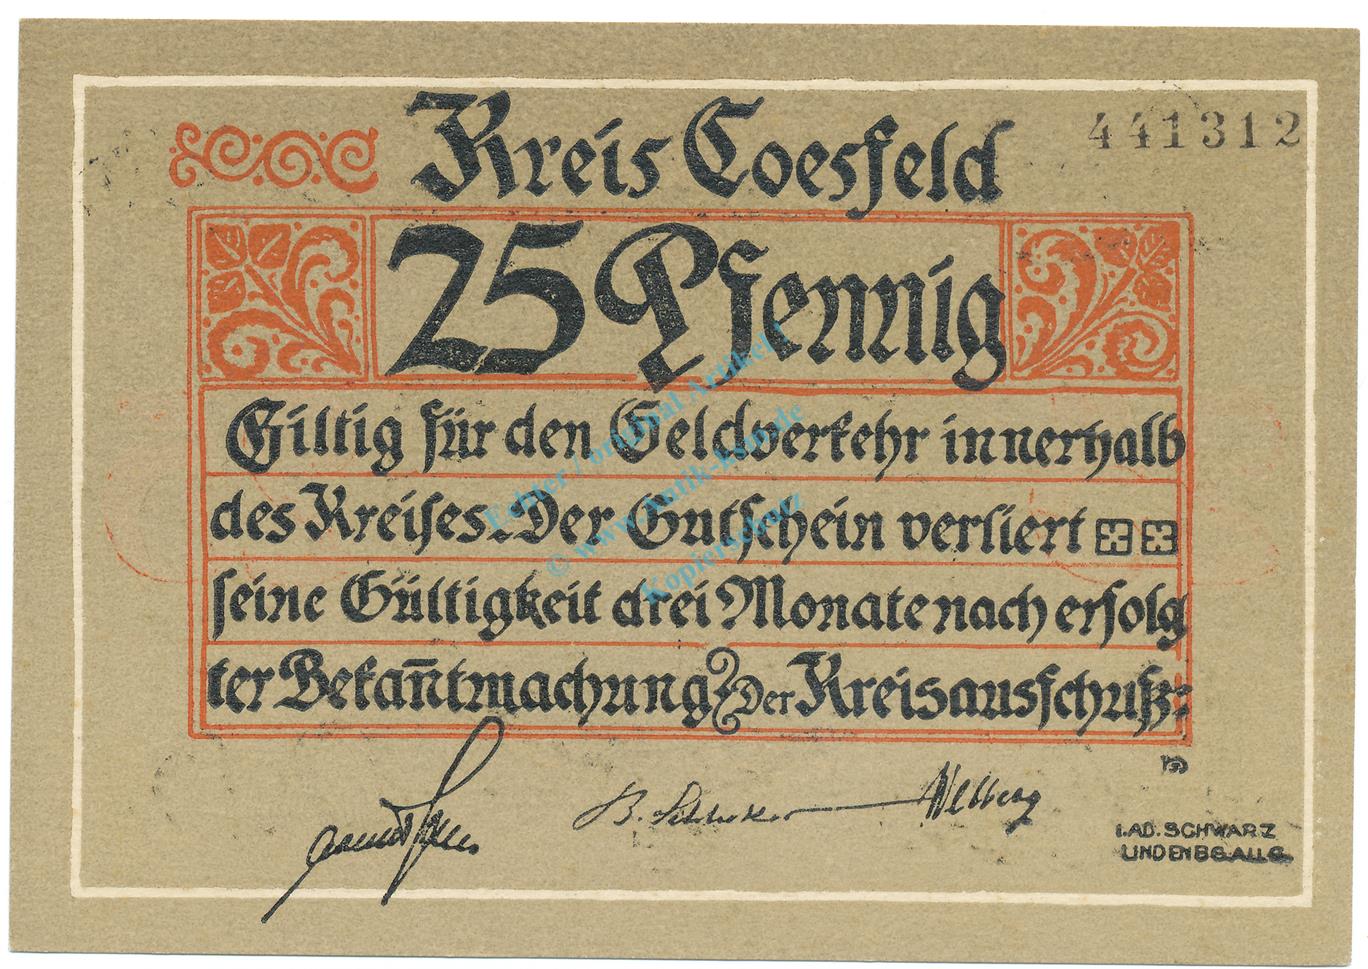 Kreis Coesfeld
441312
25 Pfennig
Giltig für den Geldverkehr innerhalb
des Kreises. Der Gutschein verliert
seine Gültigkeit drei Monate nach erfolg
ter Bekan̄tmachung Der Kreisausschuß:
I.AD. SCHWARZ
LINDENBG.ALLG.
Echter / original Artikel !
© www.Antik-kom.de
Kopierschutz